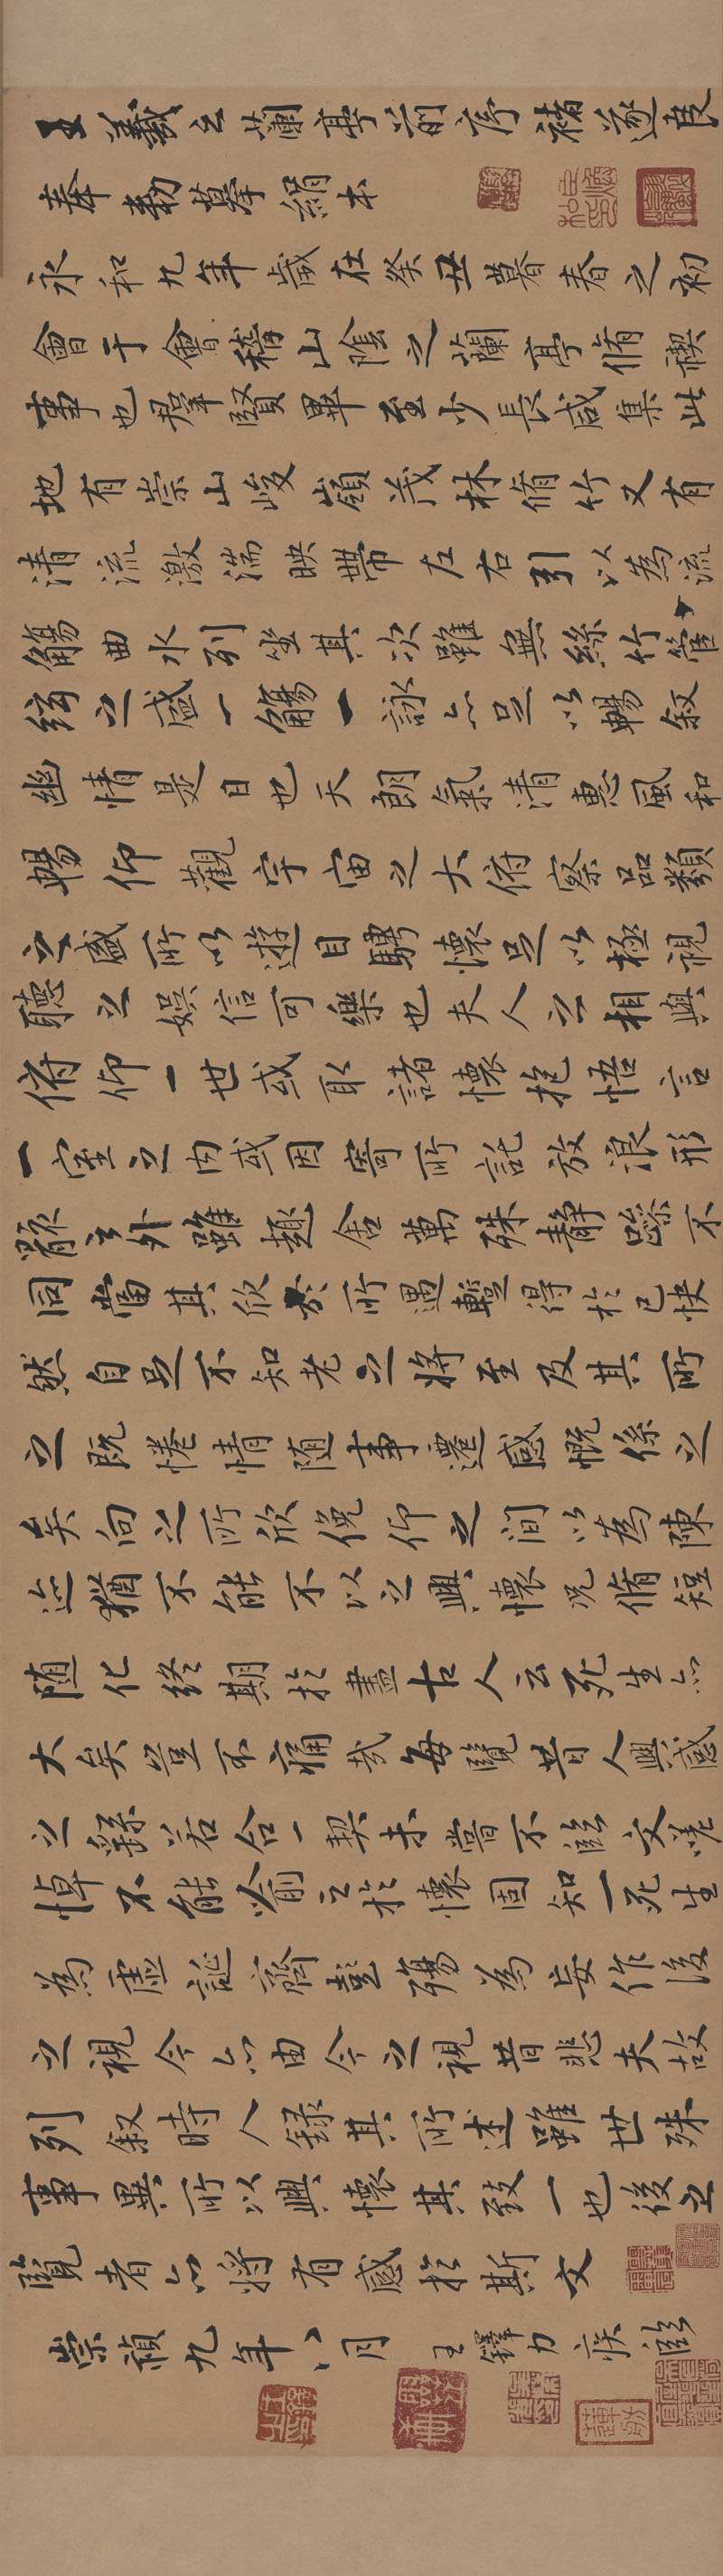 王羲之蘭亭前序褚遂良
奉勅摹絹本
永和九年歲在癸丑暮春之初
會于會稽山陰之蘭亭脩禊
事也群賢畢至少長咸集此
地有崇山峻嶺茂林脩竹又有
清流激湍映帶左右引以為流
觴曲水列坐其次雖無絲竹管
絃之盛一觴一詠亦足以暢叙
幽情是日也天朗氣清惠風和
暢仰觀宇宙之大俯察品類
之盛所以遊目騁懷足以極視
聽之娛信可樂也夫人之相與
俯仰一世或取諸懷抱悟言
一室之内或因寄所託放浪形
骸之外雖趣舍萬殊静躁不
同當其欣於所遇暫得於己快
然自足不知老之將至及其所
之既惓情隨事遷感慨係之
矣向之所欣俛仰之間以為陳
迹猶不能不以之興懷況脩短
隨化終期於盡古人云死生亦
大矣豈不痛哉每覽昔人興感
之繇若合一契未嘗不臨文嗟
悼不能喻之於懷固知一死生
為虛誕齊彭殤為妄作後
之視今亦由今之視昔悲夫故
列叙時人錄其所述雖世殊
事異所以興懷其致一也後之
覽者亦將有感於斯文
崇禎九年八月 王鐸力疾臨